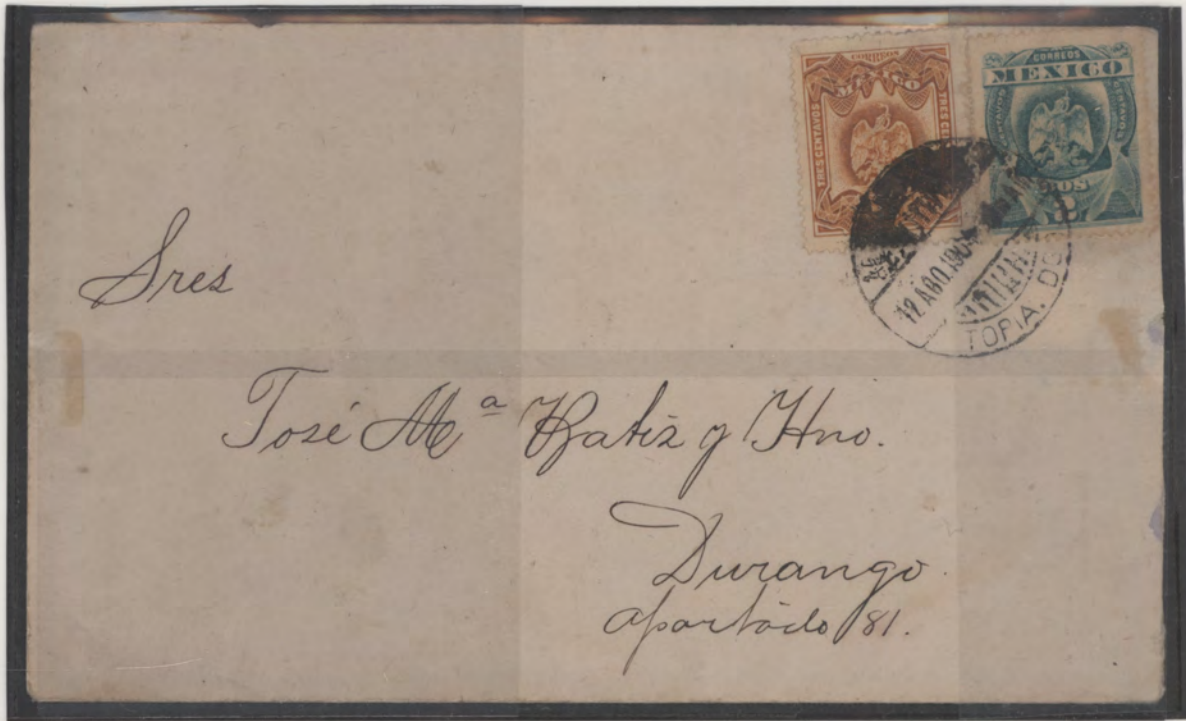 CORREOS
MEXICO
TRES CENTAVOS
CORREOS
MEXICO
CENTAVOS
DOS
2
12 AGO. 1904
TOPIA. DGO
Sres
José Mª Batiz y Hno.
Durango.
apartado 81.